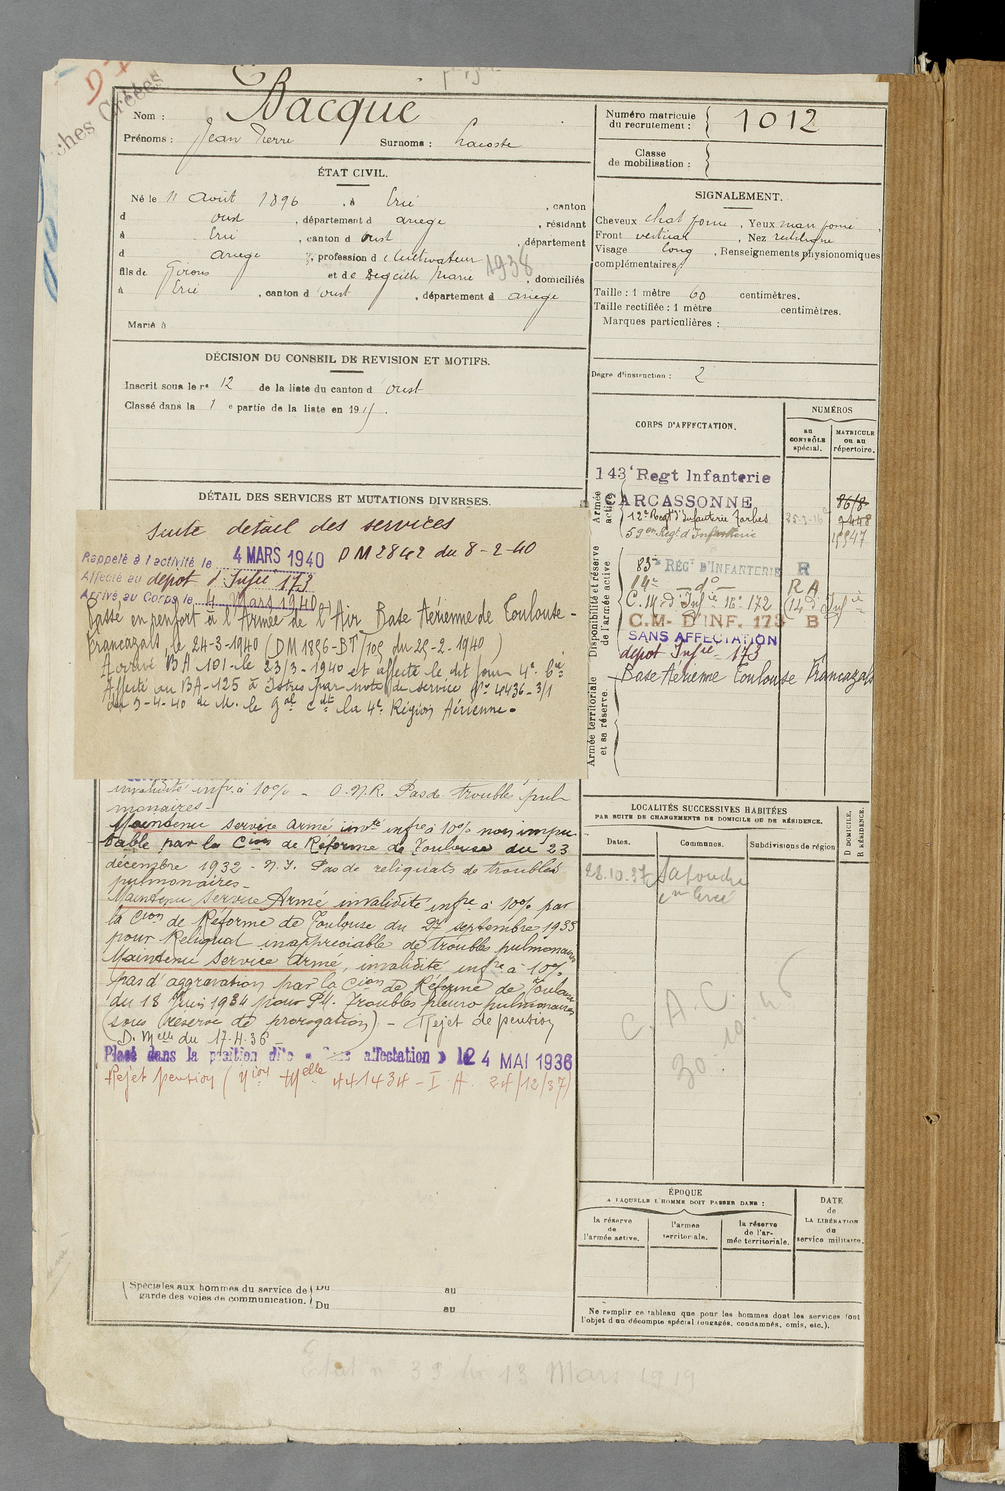 Bacque
Nom :
Prénoms : Jean Pierre Surnoms : Lacoste
Numéro matricule du recrutement : 1012
Classe de mobilisation :
ÉTAT CIVIL.
Né le 11 Août 1896, à Ercé, canton
d oust, département d ariege, résidant
à Ercé, canton d oust, département
d ariege, profession de Cultivateur
fils de Girons et de Degeilh Marie, domiciliés
1938
à Ercé, canton d oust, département d ariege
Marié à
SIGNALEMENT.
Cheveux chat fonce, Yeux marr fonce,
Front vertical, Nez rectiligne
Visage long, Renseignements physionomiques
complémentaires
Taille : 1 mètre 60 centimètres.
Taille rectifiée : 1 mètre centimètres.
Marques particulières :
Degré d'instruction : 2
DÉCISION DU CONSEIL DE REVISION ET MOTIFS.
Inscrit sous le n° 12 de la liste du canton d oust
Classé dans la 1 e partie de la liste en 191
DÉTAIL DES SERVICES ET MUTATIONS DIVERSES.
suite détail des services
Rappelé à l'activité le 4 MARS 1940 DM 2842 du 8-2-40
Affecté au dépot d'Infie 173
Arrivé au Corps le 4 Mars 1940
Passé en renfort à l'Armée de l'Air Base Aérienne de Toulouse-
Francazals, le 24-3-1940 (DM 1896-BT/ du 25-2-1940)
Arrivé BA-101-le 23/3-1940 et affecté le dit jour 4e Cie
Affecté au BA-125 à Istres par note de service N° 4436-3/1
du 5-4-40 de M. le Gal Cdt la 4e Région Aérienne.
invalidité infre à 10% - O.N.R. Pas de trouble pul-
monaires-
Maintenu service armé invté infre à 10% non impu
table par la Cion de Réforme de Toulouse du 23
décembre 1932 - N.I. Pas de reliquats de troubles
pulmonaires-
Maintenu Service Armé invalidité infre à 10% par
la Cion de Réforme de Toulouse du 27 septembre 1933
pour Reliquat inappréciable de trouble pulmonaires
Maintenu Service Armé, invalidité infre à 10%
pas d'aggravation par la Cion de Réforme de Toulouse
du 18 Juin 1934 pour P4. Troubles pleuro pulmonaires
(sous réserve de prorogation) - Rejet de pension
(D. Melle du 17.4.36 -
Placé dans la position dite « Sans affectation » le 24 MAI 1936
Rejet pension ( 441434 - I.A. 24/12/37)
Spéciales aux hommes du service de garde des voies de communication.
Du au
Du au
CORPS D'AFFECTATION.
NUMÉROS
au CONTRÔLE spécial.
MATRICULE ou au répertoire.
Armée active
143e Regt Infanterie
CARCASSONNE
8618
12e Regt d'Infanterie Tarbes
59e Regt d'Infanterie
Disponibilité et réserve de l'armée active
83e REGt D'INFANTERIE R
14e - do - RA
C.M d'Infie 16e 172
C.M- D'INF. 173 B
SANS AFFECTATION
depot Infie 173
Armée territoriale et sa réserve.
Base Aérienne Toulouse Francazals
LOCALITÉS SUCCESSIVES HABITÉES
PAR SUITE DE CHANGEMENTS DE DOMICILE OU DE RÉSIDENCE.
Dates.
Communes.
Subdivisions de région
D DOMICILE.
R RÉSIDENCE.
28.10.37
Ercé
C.A.C.
30.10.46
ÉPOQUE
A LAQUELLE L'HOMME DOIT PASSER DANS :
la réserve de l'armée active.
l'armée territoriale.
la réserve de l'armée territoriale.
DATE de LA LIBÉRATION du service militaire.
Ne remplir ce tableau que pour les hommes dont les services font
l'objet d'un décompte spécial (engagés, condamnés, omis, etc.).
Etat n° 39 du 13 Mars 1919